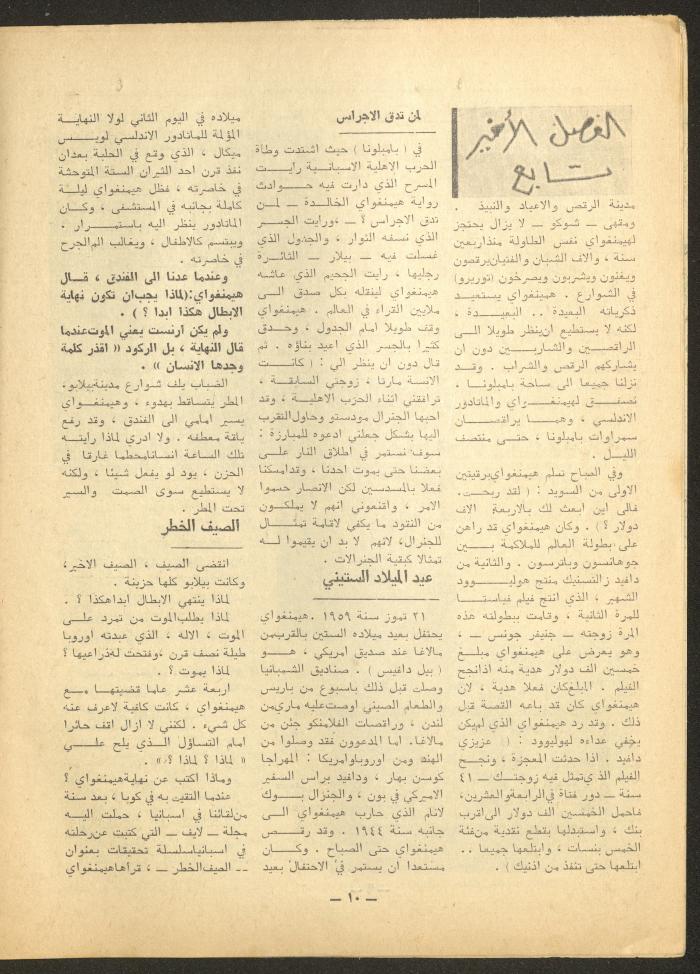 الفصل الأخير
تابع
مدينة الرقص والاعياد والنبيذ .
ومقهى ــ شوكو ــ لا يزال يحتجز
لهيمنغواي نفس الطاولة منذاربعين
سنة ، والاف الشبان والفتيان يرقصون
ويغنون ويشربون ويصرخون (توريرو)
في الشوارع . همينغواي يستعيد
ذكرياته البعيدة .. البعيدة ،
لكنه لا يستطيع ان ينظر طويلا الى
الراقصين والشاربين دون ان
يشاركهم الرقص والشراب . وقد
نزلنا جميعا الى ساحة بامبلونا ،
نصفق لهيمنغواي والماتادور
الاندلسي ، وهما يراقصان
سمراوات بامبلونا ، حتى منتصف
الليل .
وفي الصباح تسلم هيمنغواي برقيتين
الاولى من السويد : ( لقد ربحت.
فالى اين ابعث لك بالاربعة الاف
دولار ؟ ) . وكان هيمنغواي قد راهن
على بطولة العالم للملاكمة بين
جوهانسون وباترسون . والثانية من
دافيد زالسنيك منتج هوليود
الشهير ، الذي انتج فيلم فياستا
للمرة الثانية ، وقامت ببطولته هذه
المرة زوجته ــ جنيفر جونس ــ ،
وهو يعرض على هيمنغواي مبلغ
خمسين الف دولار هدية منه اذانجح
الفيلم . المبلغ كان فعلا هدية ، لان
هيمنغواي كان قد باعه القصة قبل
ذلك . وقد رد هيمنغواي الذي لم يكن
يخفي عداءه لهوليوود : ( عزيزي
دافيد . اذا حدثت المعجزة ، ونجح
الفيلم الذي تمثل فيه زوجتك ــ ٤١
سنة ــ دور فتاة في الرابعة والعشرين،
فاحمل الخمسين الف دولار الى اقرب
بنك ، واستبدلها بقطع نقدية من فئة
الخمس بنسات ، وابتلعها جميعا ..
ابتلعها حتى تنفذ من اذنيك ) .
لمن تدق الاجراس
في ( بامبلونا ) حيث اشتدت وطاة
الحرب الاهلية الاسبانية رايت
المسرح الذي دارت فيه حوادث
رواية هيمنغواي الخالدة ــ لمن
تدق الاجراس ؟ ــ ، ورايت الجسر
الذي نسفه الثوار ، والجدول الذي
غسلت فيه ــ بيلار ــ الثائرة
رجليها ، رايت الجحيم الذي عاشه
هيمنغواي لينقله بكل صدق الى
ملايين القراء في العالم . هيمنغواي
وقف طويلا امام الجدول ، وحدق
كثيرا بالجسر الذي اعيد بناؤه . ثم
قال دون ان ينظر الي : ( كانت
الانسة مارتا ، زوجتي السابقة ،
ترافقني اثناء الحرب الاهلية ، وقد
احبها الجنرال مودستو وحاول التقرب
اليها بشكل جعلني ادعوه للمبارزة :
سوف نستمر في اطلاق النار على
بعضنا حتى يموت احدنا ، وقد امسكنا
فعلا بالمسدسين لكن الانصار حسموا
الامر ، واقنعوني انهم لا يملكون
من النقود ما يكفي لاقامة تمثال
للجنرال، لانهم لا بد ان يقيموا له
تمثالا كبقية الجنرالات .
عيد الميلاد الستيني
٢١ تموز سنة ١٩٥٩ . هيمنغواي
يحتفل بعيد ميلاده الستين بالقرب من
مالاغا عند صديق امريكي ، هو
( بيل دافيس ) . صناديق الشمبانيا
وصلت قبل ذلك باسبوع من باريس
والطعام الصيني اوصت عليه ماري من
لندن ، وراقصات الفلامنكو جئن من
مالاغا. اما المدعوون فقد وصلوا من
الهند ومن اوروبا وامريكا : المهراجا
كوسن بهار ، ودافيد براس السفير
الامبركي في بون ، والجنرال بوك
لانام الذي حارب هيمنغواي الى
جانبه سنة ١٩٤٤ . وقد رقص
هيمنغواي حتى الصباح . وكان
مستعدا ان يستمر في الاحتفال بعيد
ميلاده في اليوم الثاني لولا النهاية
المؤلمة للماتادور الاندلسي لويس
ميكال ، الذي وقع في الحلبة بعد ان
نفذ قرن احد الثيران الستة المتوحشة
في خاصرته ، فظل هيمنغواي ليلة
كاملة بجانبه في المستشفى ، وكان
الماتادور ينظر اليه باستمرار ،
ويبتسم كالاطفال ، ويغالب الم الجرح
في خاصرته .
وعندما عدنا الى الفندق ، قال
هيمنغواي: (لماذا يجب ان تكون نهاية
الابطال هكذا ابدا ؟ ) .
ولم يكن ارنست يعني الموت عندما
قال النهاية ، بل الركود « اقذر كلمة
وجدها الانسان » .
الضباب يلف شوارع مدينة بيلابو،
المطر يتساقط بهدوء ، وهيمنغواي
يسير امامي الى الفندق ، وقد رفع
ياقة معطفه . ولا ادري لماذا رايته
تلك الساعة انسانا محطما غارقا في
الحزن ، يود لو يفعل شيئا ، ولكنه
لا يستطيع سوى الصمت والسير
تحت المطر .
الصيف الخطر
انقضى الصيف ، الصيف الاخير،
وكانت بيلابو كلها حزينة .
لماذا ينتهي الابطال ابدا هكذا ؟ .
لماذا يطلب الموت من تمرد على
الموت ، الاله ، الذي عبدته اوروبا
طيلة نصف قرن ، وفتحت له ذراعيها ؟
لماذا يموت ؟ .
اربعة عشر عاما قضيتها مع
هيمنغواي ، كانت كافية لاعرف عنه
كل شيء . لكنني لا ازال اقف حائرا
امام التساؤل الذي يلح علي
« لماذا ؟ لماذا ؟ » .
وماذا اكتب عن نهاية هيمنغواي ؟
عندما التقيت به في كوبا ، بعد سنة
من لقائنا في اسبانيا ، حملت اليه
مجلة ــ لايف ــ التي كتبت عن رحلته
في اسبانيا سلسلة تحقيقات بعنوان
ــ الصيف الخطر ــ ، قراها هيمنغواي
ــ ١٠ ــ